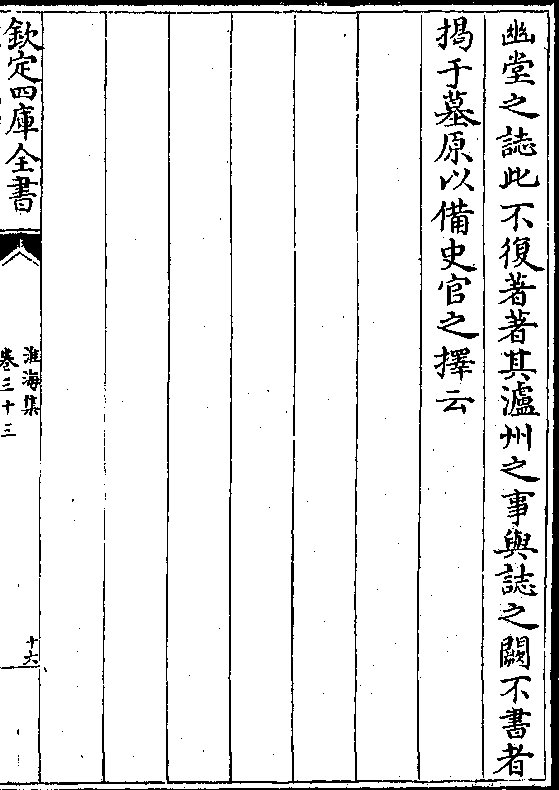 幽堂之誌此不復著著其瀘州之事與誌之闕不書者
揭于墓原以備史官之擇云
欽定四庫全書
淮海集
卷三十三
十六